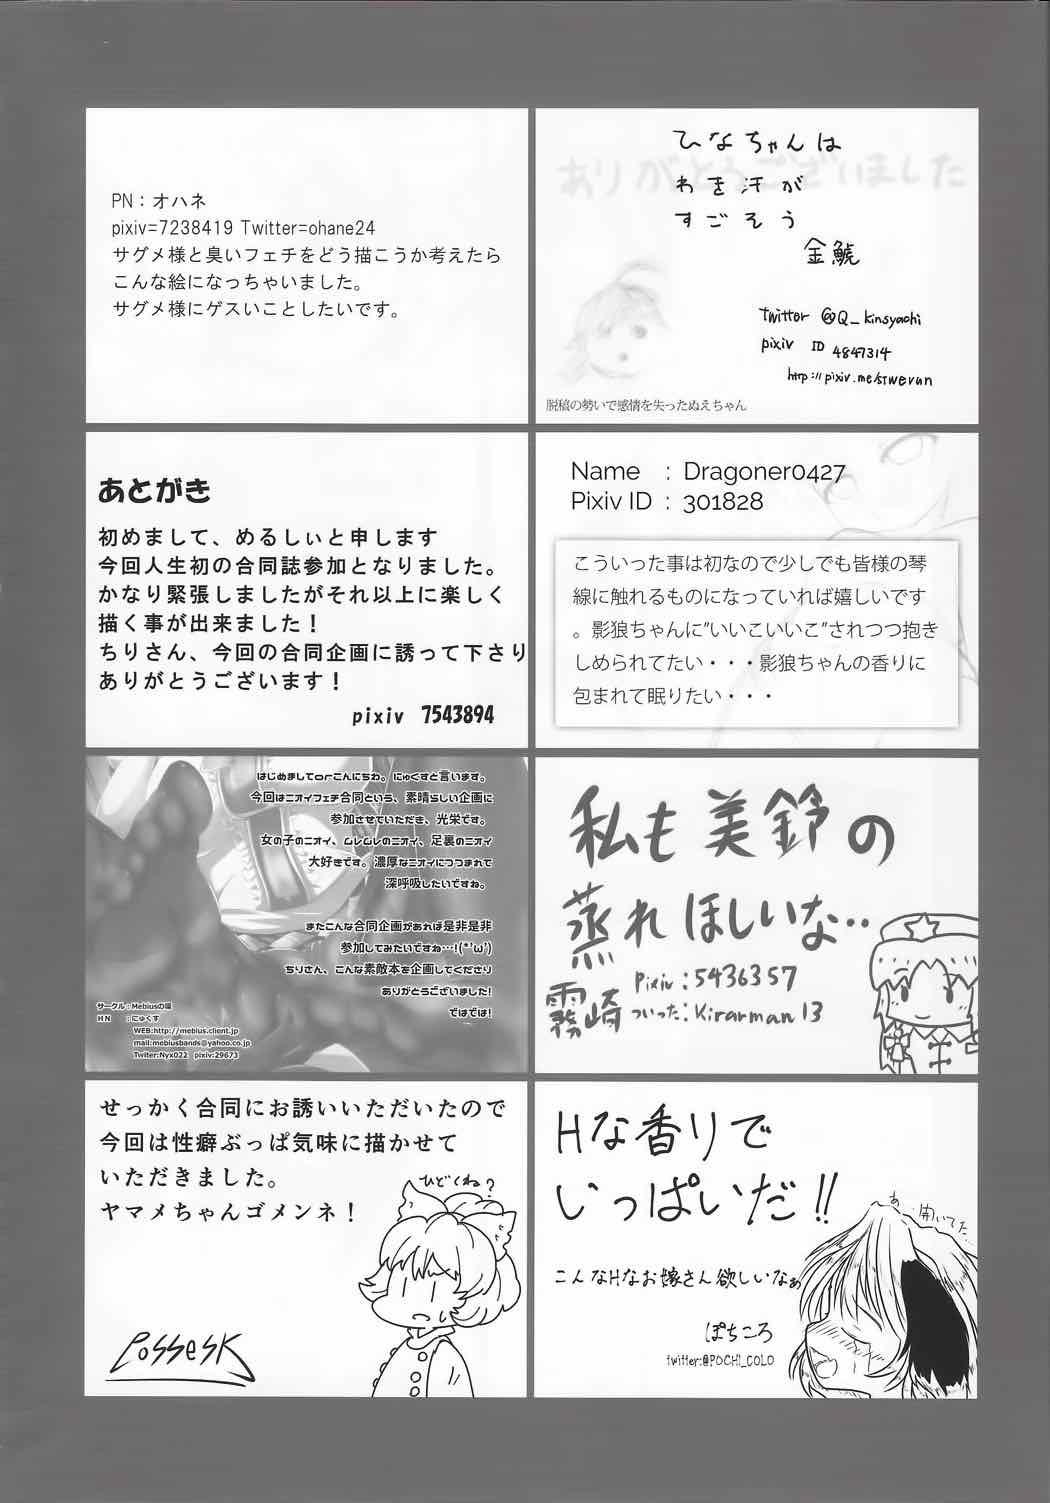 PN：オハネ
pixiv=7238419 Twitter=ohane24
サグメ様と臭いフェチをどう描こうか考えたら
こんな絵になっちゃいました。
サグメ様にゲスいことしたいです。
ありがとうございました
ひなちゃんは
わき汗が
すごそう
金鯱
twitter @Q_kinsyachi
pixiv ID 4847314
http://pixiv.me/stwevan
脱稿の勢いで感情を失ったぬえちゃん
あとがき
初めまして、めるしぃと申します
今回人生初の合同誌参加となりました。
かなり緊張しましたがそれ以上に楽しく
描く事が出来ました！
ちりさん、今回の合同企画に誘って下さり
ありがとうございます！
pixiv 7543894
Name : Dragoner0427
Pixiv ID : 301828
こういった事は初なので少しでも皆様の琴
線に触れるものになっていれば嬉しいです
。影狼ちゃんに”いいこいいこ”されつつ抱き
しめられてたい・・・影狼ちゃんの香りに
包まれて眠りたい・・・
はじめましてorこんにちわ。にゅくすと言います。
今回はニオイフェチ合同という、素晴らしい企画に
参加させていただき、光栄です。
女の子のニオイ、ムレムレのニオイ、足裏のニオイ
大好きです。濃厚なニオイにつつまれて
深呼吸したいですね。
またこんな合同企画があれば是非是非
参加してみたいですね…!(*'ω')
ちりさん、こんな素敵本を企画してくださり
ありがとうございました!
ではでは!
サークル：Mebiusの環
HN ：にゅくす
WEB:http://mebius.client.jp
mail:mebiusbands@yahoo.co.jp
Twiter:Nyx022 pixiv:29673
私も美鈴の
蒸れほしいな‥
Pixiv：5436357
霧崎 ついった：Kirarman13
せっかく合同にお誘いいただいたので
今回は性癖ぶっぱ気味に描かせて
いただきました。
ヤマメちゃんゴメンネ！
ひどくね？
PossesK
Hな香りで
いっぱいだ!!
あ…開いてた…
こんなHなお嫁さん欲しいなぁ
ぽちころ
twitter:@POCHI_COLO